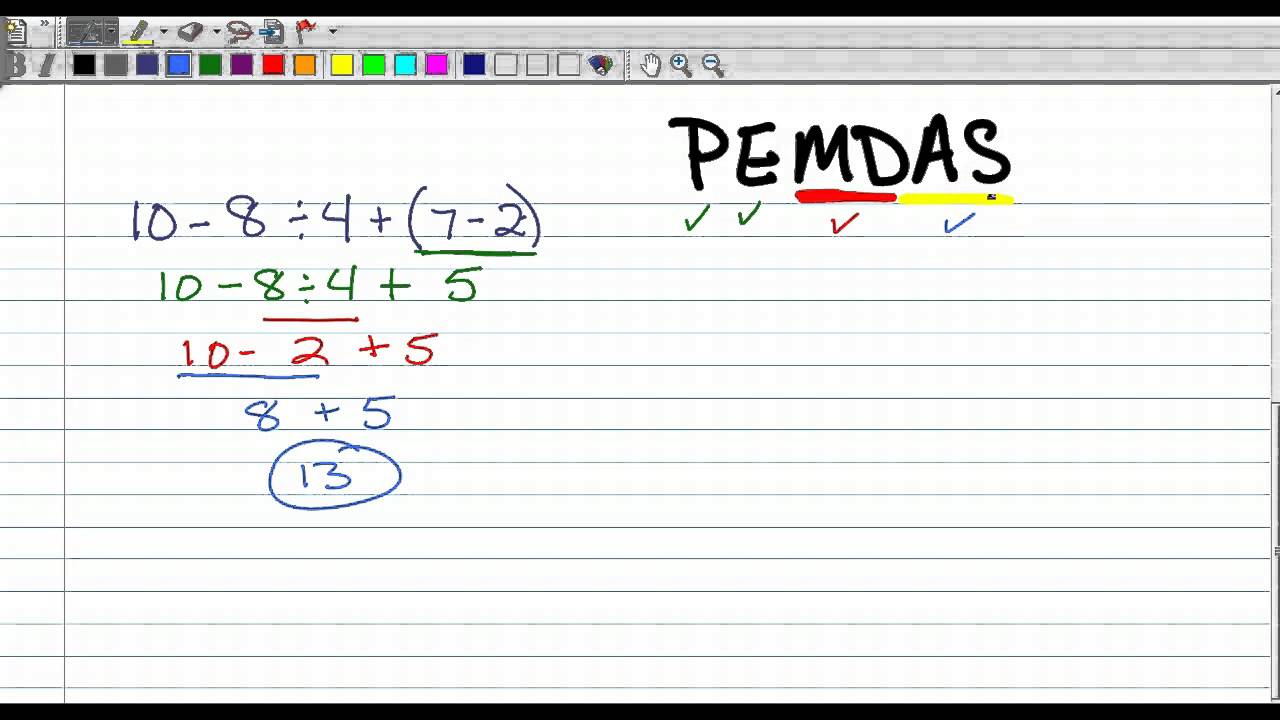 PEMDAS
10 - 8 ÷ 4 + (7 - 2)
10 - 8 ÷ 4 + 5
10 - 2 + 5
8 + 5
13